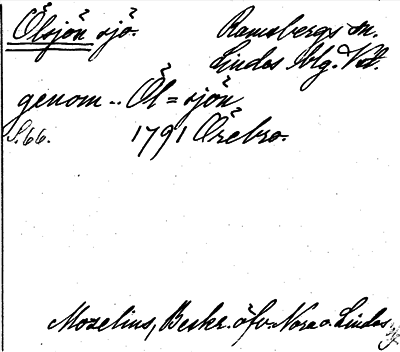 Ölsjön sjö.
Ramsbergs sn.
Lindes blg. Vstl.
genom .. Öl = sjön
S. 66. 1791 Örebro.
Mozelius, Beskr. öfv. Nora o. Lindes